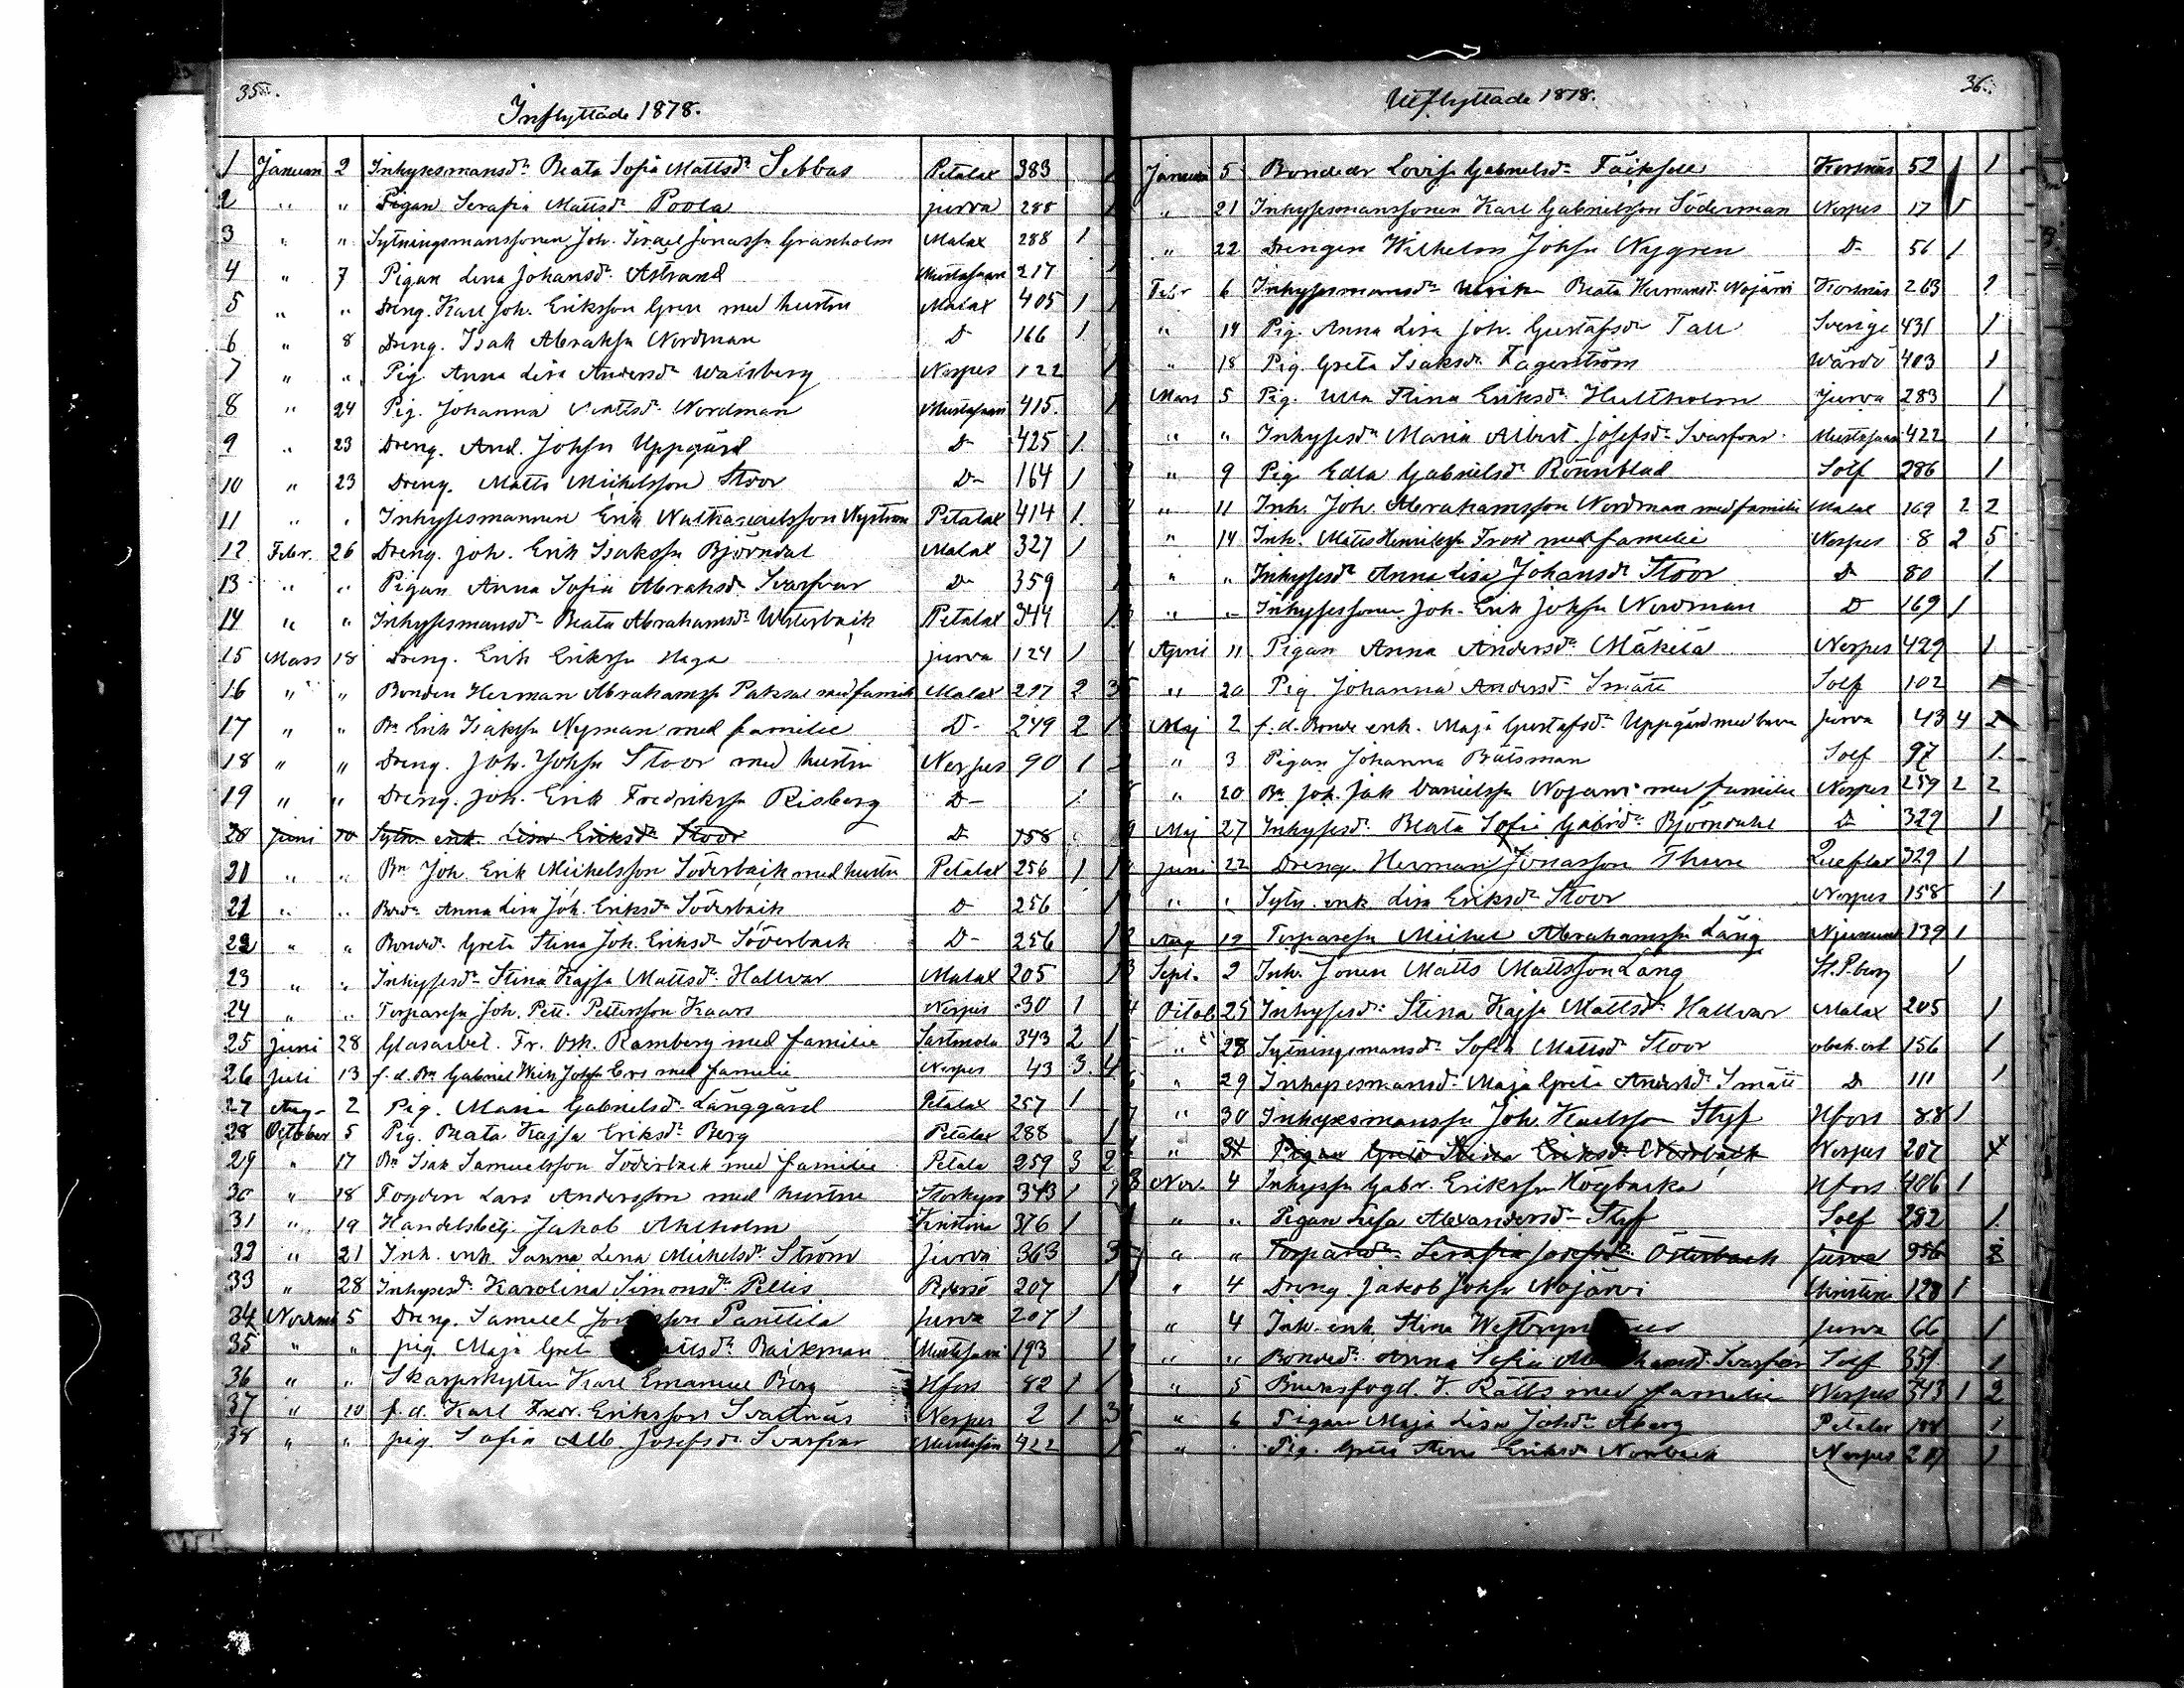 35.
Inflyttade 1878.
1 Januari 2 Inhysesmansdr Beata Sofia Mattsdr Sebbas Petalax 383
2 " " Pigan Serafia Mattsdr Poola Jurva 288
3 " " Sytningsmanssonen Joh. Israel Jonasson Granholm Malax 288 1
4 " 7 Pigan Lena Johansdr Åstrand Mustasaari 217
5 " " Dreng. Karl Joh. Eriksson Gren med hustru Malax 405 1 1
6 " 8 Dreng. Isak Abrahsn Nordman D- 166 1
7 " " Pig. Anna Lisa Andersdr Waisberg Nerpes 122
8 " 24 Pig. Johanna Mattsdr Nordman Mustasaari 415
9 " 23 Dreng. And. Johsn Uppgård D- 425 1
10 " 23 Dreng. Matts Michelsson Stoor D- 164 1
11 " " Inhysesmannen Erik Nathanaelsson Nyström Petalax 414 1
12 Febr. 26 Dreng. Joh. Erik Isaksson Björndal Malax 327 1
13 " " Pigan Anna Sofia Abrahsdr Svarfvar D- 359
14 " " Inhysesmansdr Beata Abrahamsdr Westerback Petalax 344
15 Mars 18 Dreng. Erik Eriksson Haga Jurva 124 1
16 " " Bonden Herman Abrahamsn Paksal med familie Malax 297 2 3
17 " " Bn Erik Isaksn Nyman med familie D- 249 2 1
18 " " Dreng. Joh. Johsn Stoor med hustru Nerpes 90 1
19 " " Dreng. Joh. Erik Fredriksn Risberg D- 1
20 Juni 10 Sytn. enk. Lisa Eriksdr Stoor D- 158
21 " " Bn Joh. Erik Michelsson Söderback med hustru Petalax 256 1 1
21 " " Bondr Anna Lisa Joh. Eriksdr Söderback D- 256
22 " " Bonddr Greta Stina Joh. Eriksdr Söderback D- 256 1
23 " " Inhysesdr Stina Kajsa Mattsdr Hallvar Malax 205 1
24 " " Torparesn Joh. Pett. Pettersson Kaars Nerpes 30 1
25 Juni 28 Glasarbet. Fr. Osk. Ramberg med familie Sastmola 343 2 1
26 Juli 13 f.d. Bn Gabriel Johsn med familie Nerpes 43 3 4
27 Aug. 2 Pig. Maria Gabrielsdr Långgård Petalax 257 1
28 October 5 Pig. Beata Kajsa Eriksdr Berg Petalax 288 1
29 " 17 Bn Isak Samuelsson Söderback med familie Petala 259 3 2
30 " 18 Fogden Lars Andersson med hustru Storkyro 343 1 1
31 " 19 Handelsbetj. Jakob Ahlholm Kristina 376 1
32 " 21 Inh. enk. Sanna Lena Michelsdr Ström Jurva 363 3
33 " 28 Inhysesdr Karolina Simonsdr Pellis Pedersö 207 1
34 Novemb 5 Dreng. Samuel Panttila Jurva 207 1
35 " " pig. Maja Greta Mattsdr Backman Mustasaari 193 1
36 " " Skarpskytten Karl Emanuel Berg Hfors 82 1 1
37 " 10 f.d. Karl Fredr. Eriksson Svartnäs Nerpes 2 1 3
38 " " pig. Sofia Alb. Josefsdr Svarfvar Mustasaari 422 1
36.
Utflyttade 1878.
Januari 5 Bondedr Lovisa Gabrielsdr Korsnäs 52 1 1
" 21 Inhysesmanssonen Karl Gabrielsson Söderman Nerpes 17 1
" 22 Drengen Wilhelm Johsn Nygren D- 56 1
Febr 6 Inhysesmansdr Ulrika Beata Hermansdr Nojärvi Korsnäs 263 1
" 14 Pig. Anna Lisa Joh. Gustafsdr Tall Sverige 431 1
" 18 Pig. Greta Isaksdr Fagerström Wårdö 403 1
Mars 5 Pig. Ulla Stina Eriksdr Hultholm Jurva 283 1
" " Inhysesdr Maria Albert. Josefsdr Svarfvar Mustasaari 422 1
" 9 Pig. Edla Gabrielsdr Rönnblad Solf 286 1
" 11 Inh. Joh. Abrahamsson Nordman med familie Malax 169 2 2
" 14 Inh. Matts Henriksn Frost med familie Nerpes 8 2 5
" " Inhysesdr Anna Lisa Johansdr Stoor D- 80 1
" " Inhysessonen Joh. Erik Johsn Nordman D 169 1
April 11 Pigan Anna Andersdr Mäkelä Nerpes 429 1
" 20 Pig. Johanna Andersdr Smått Solf 102 1
Maj 2 f.d. Bonde enk. Maja Gustafsdr Uppgård med barn Jurva 43 4 2
" 3 Pigan Johanna Båtsman Solf 97 1
" 20 Bn Joh. Jak Danielsn Nojärvi med familie Nerpes 259 2 2
Maj 27 Inhysesdr Beata Sofia Gabrdr Björndahl D 329 1
Juni 22 Dreng. Herman Jonasson Thure Qveflax 329 1
" " Sytn. enk. Lisa Eriksdr Stoor Nerpes 158 1
Aug 12 Torparesn Michel Abrahamsn Lång Njurunda 139 1
Sept. 2 Inh. sonen Matts Mattsson Lång St. P.borg 1
Octob 25 Inhysesdr Stina Kajsa Mattsdr Hallvar Malax 205 1
" 28 Sytningsmansdr Sofia Mattsdr Stoor obek. ort 156 1
" 29 Inhysesmansdr Maja Greta Andersdr Smått D 111 1
" 30 Inhysesmanssn Joh. Karlsson Styf Hfors 88 1
" 31 Pigan Greta Stina Eriksdr Norrback Nerpes 207 1
Nov. 4 Inhysesn Gabr. Eriksson Högbacka Hfors 406 1
" " Pigan Lisa Alexandersdr Styf Solf 282 1
" " Torparedr Serafia Josefsdr Österback Jurva 356
" 4 Dreng. Jakob Johsn Nojärvi Christina 128 1
" 4 Inh. enk. Stina Jurva 66 1
" " Bondedr Anna Sofia Svarfvar Solf 359 1
" 5 Bruksfogd. V. Rätts med familie Nerpes 343 1 2
" 6 Pigan Maja Lisa Johdr Åberg Petalax 188 1
" " Pig. Greta Stina Eriksdr Norrback Nerpes 207 1